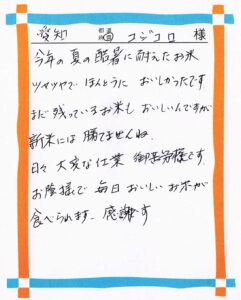 愛知 都道府県 コジコロ 様
今年の夏の酷暑に耐えたお米
ツヤツヤで ほんとうに おいしかったです
まだ残っているお米も おいしいんですが
新米には 勝てませんね。
日々 大変な仕業 御苦労様です
お陰様で 毎日おいしいお米が
食べられます。感謝です